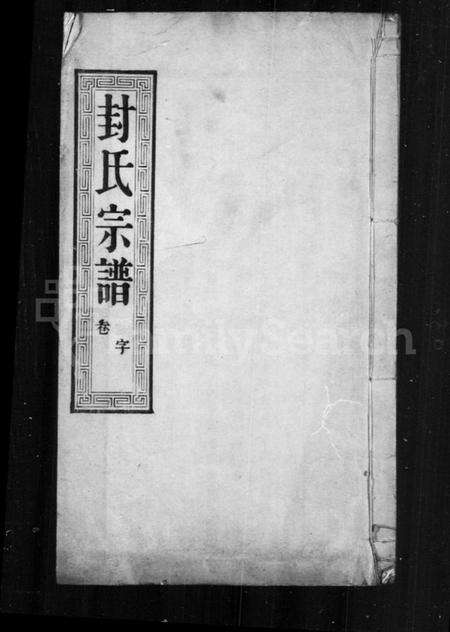 封氏宗譜
卷
字
FamilySearch